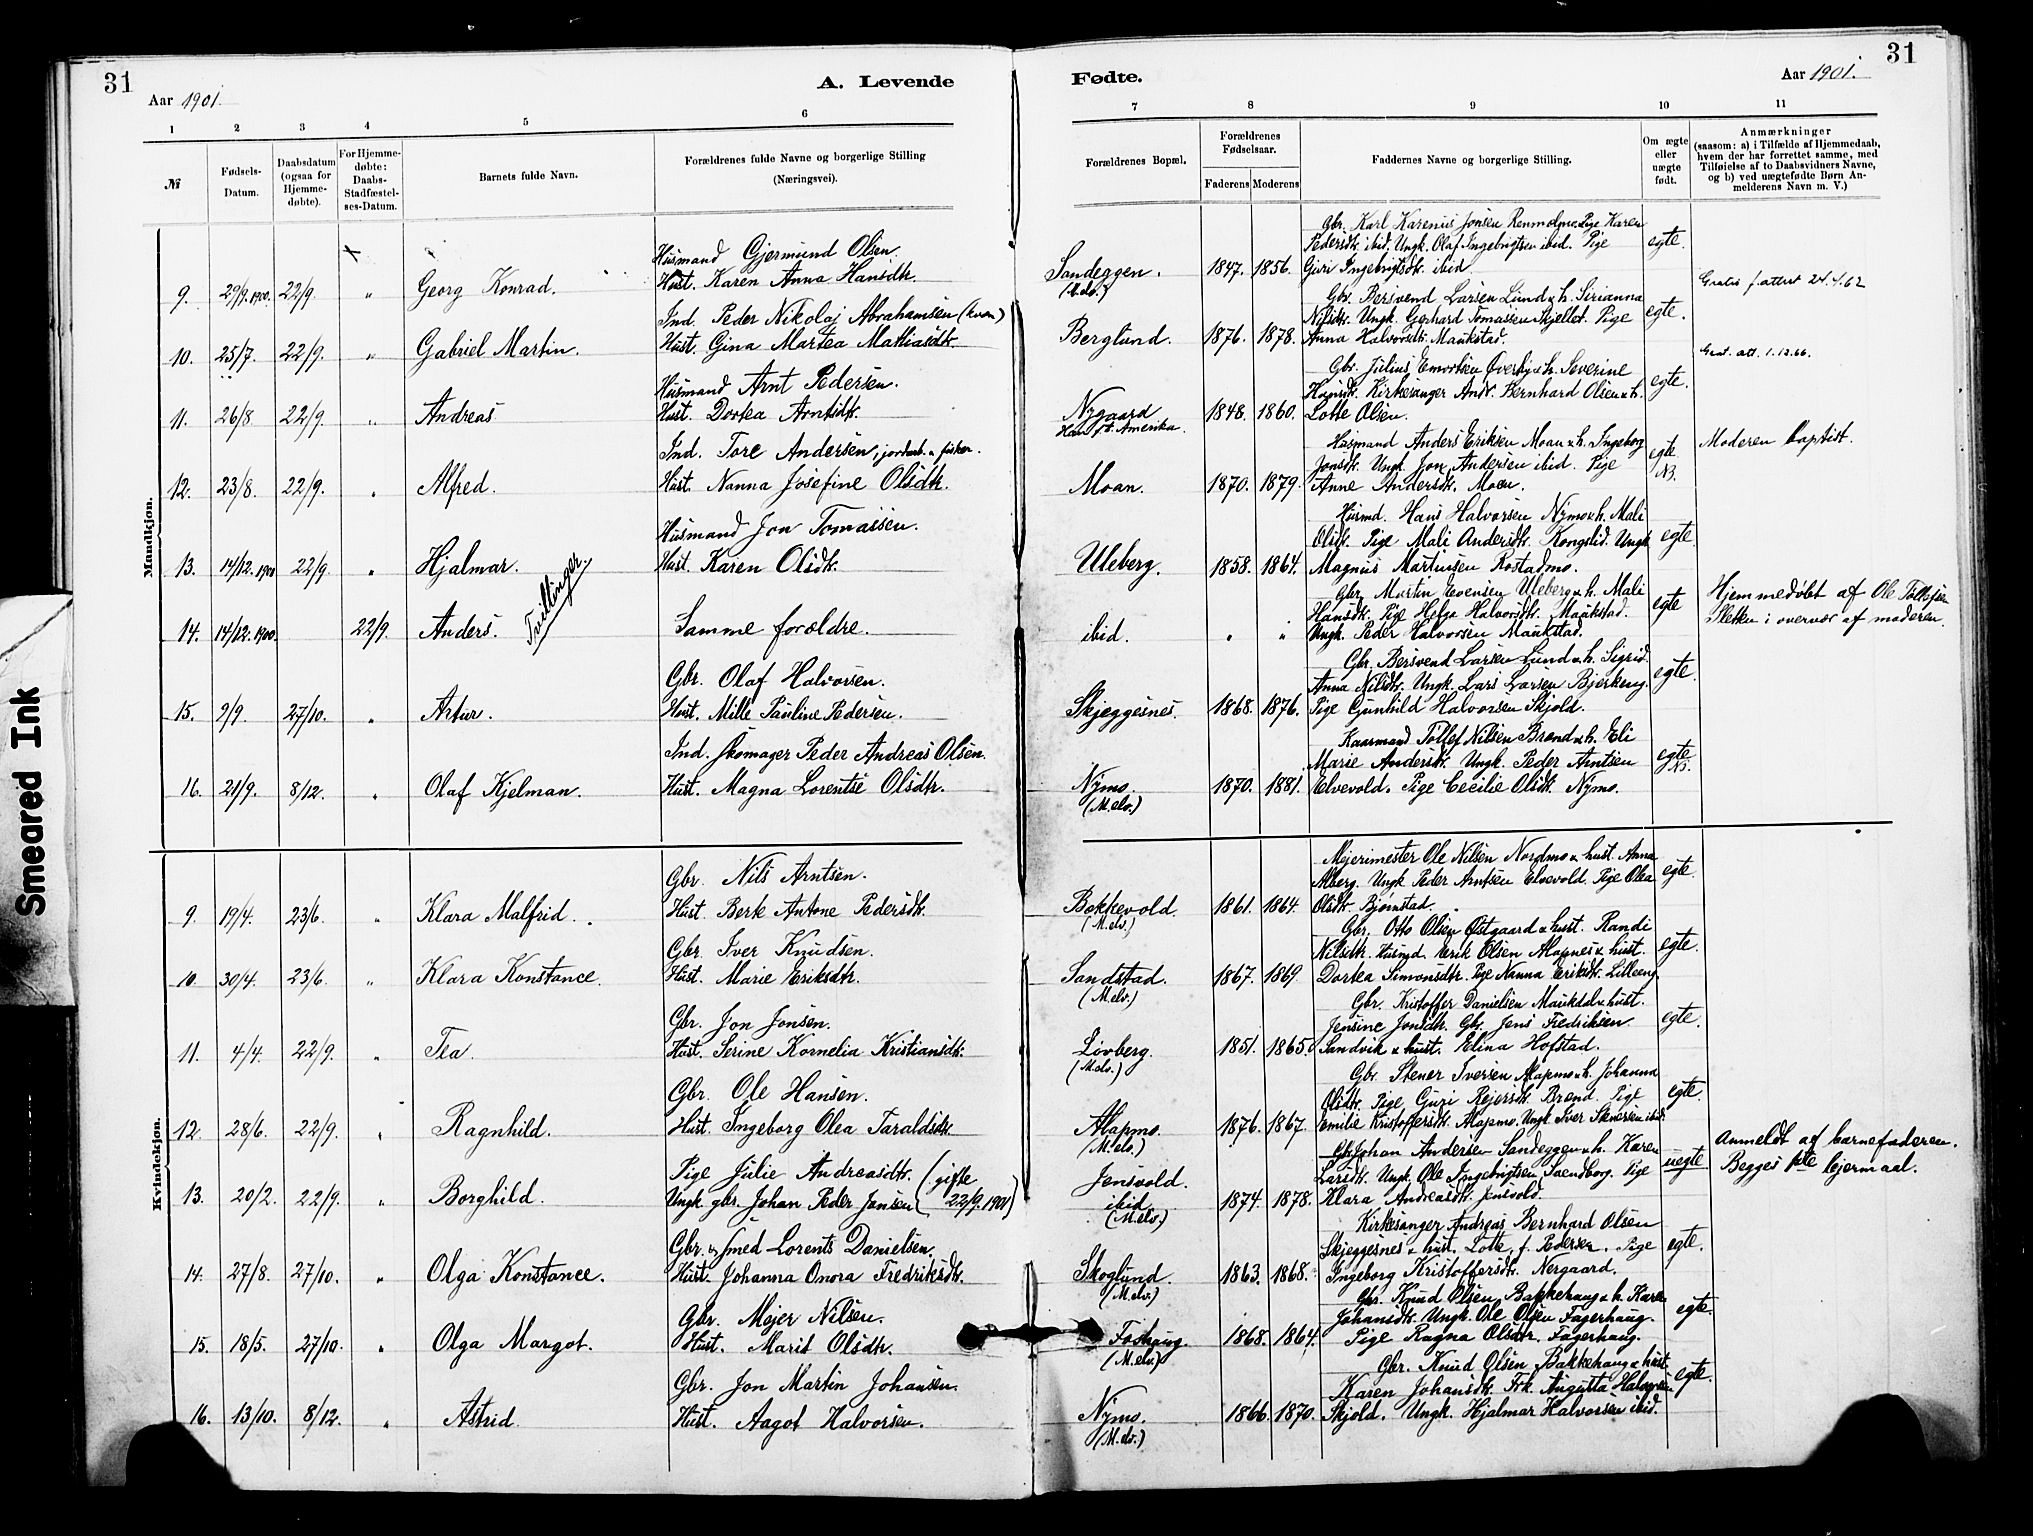 31
Aar 1901.
A. Levende
1 2 3 4 5 6
№
Fødsels-Datum.
Daabsdatum (ogsaa for Hjemmedøbte).
For Hjemmedøbte: Daabs-Stadfæstelses-Datum.
Barnets fulde Navn.
Forældrenes fulde Navne og borgerlige Stilling
(Næringsvei).
Fødte.
Aar 1901.
31
7 8 9 10 11
Forældrenes Bopæl.
Forældrenes Fødselsaar.
Faderens Moderens
Faddernes Navne og borgerlige Stilling.
Om ægte eller uægte født.
Anmærkninger
(saasom: a) i Tilfælde af Hjemmedaab,
hvem der har forrettet samme, med
Tilføielse af to Daabsvidners Navne,
og b) ved uægtefødte Børn Anmelderens Navn m. V.)
Mandkjøn.
Husmand Gjermund Olsen.
9. 29/9.1900. 22/9. " Georg Konrad. Hust. Karen Anna Hansdtr.
Sandeggen. (M.elv.) 1847. 1856.
Gbr. Karl Karenius Jonsen Renmolmo, Pige Karen
Pedersdtr. ibid. Ungk. Olaf Ingebrigtsen ibid. Pige
Guri Ingebrigtsdtr. ibid.
egte.
Gratis f.attest 24.4.62
Ind. Peder Nikolaj Abrahamsen (kvæn)
10. 25/7. 22/9. " Gabriel Martin. Hust. Gina Martea Mattiasdtr.
Berglund. 1876. 1878.
Gbr. Bersvend Larsen Lund & h. Sirianna
Nilsdtr. Ungk. Gerhard Tomassen Skjellet. Pige
Anna Halvorsdtr. Maukstad.
egte.
Grat. att. 1.12.66.
Husmand Arnt Pedersen.
11. 26/8. 22/9. " Andreas Hust. Dortea Arntsdtr.
Nygaard
Han p.t. Amerika. 1848. 1860.
Gbr. Julius Emertsen Øverby & h. Severine
Hansdtr. Kirkesanger Andr. Bernhard Olsen & h.
Lotte Olsen.
egte.
Ind. Tore Andersen, jordarb. & fisker.
12. 23/8. 22/9. " Alfred. Hust. Nanna Josefine Olsdtr.
Moan. 1870. 1879.
Husmand Anders Eriksen Moan & h. Ingeborg
Jonsdtr. Ungk. Jon Andersen ibid. Pige
Anne Andersdtr. Moen.
egte
N3.
Moderen baptist.
Husmand Jon Tomassen.
13. 14/12.1900 22/9 " Hjalmar. Hust. Karen Olsdtr.
Tvillinger.
Uleberg. 1858. 1864.
Husmd. Hans Halvorsen Nymo & h. Mali
Olsdtr. Pige Mali Andersdtr. Kongslid. Ungk.
Magnus Martinsen Rostadmo.
egte.
14. 14/12.1900. 22/9. Anders. Samme forældre.
ibid. " "
Gbr. Martin Evensen Uleberg & h. Mali
Hansdtr. Pige Helga Halvorsdtr. Maukstad.
Ungk. Peder Halvorsen Maukstad.
egte
Hjemmedöbt af Ole Tollefsen
Sletten i overvær af moderen.
Gbr. Olaf Halvorsen.
15. 9/9. 27/10. " Artur. Hust. Milli Pauline Pedersen.
Skjeggesnes. 1868. 1876.
Gbr. Bersvend Larsen Lund & h. Sigrid
Anna Nilsdtr. Ungk. Lars Larsen Bjerkeng.
Pige Gunhild Halvorsen Skjold.
egte.
Ind. skomager Peder Andreas Olsen.
16. 21/9. 8/12. " Olaf Kjelman. Hust. Magna Lorentse Olsdtr.
Nymo. (M.elv.) 1870. 1881.
Kaarmand Tollef Nilsen Brend & h. Eli
Marie Andersdtr. Ungk. Peder Arntsen
Elvevold. Pige Cecilie Olsdtr. Nymo.
egte
N3.
Kvindekjøn.
Gbr. Nils Arntsen.
9. 19/4. 23/6. " Klara Malfrid. Hust. Berit Antone Pedersdtr.
Bakkevold. (M.elv.) 1861. 1864.
Mejerimester Ole Nilsen Nordmo & hust. Anna
Alberg. Ungk Peder Arntsen Elvevold. Pige Olea
Olsdtr. Bjørnstad.
egte.
Gbr. Iver Knudsen.
10. 30/4. 23/6. " Klara Konstance. Hust. Marie Eriksdtr.
Sandstad. (M.elv.) 1867. 1869
Gbr. Otto Olsen Østgaard & hust. Randi
Nilsdtr. Husmd. Erik Olsen Alapnes & hust.
Dortea Simonsdtr. Pige Nanna Eriksdtr. Lilleeng.
egte.
Gbr. Jon Jonsen.
11. 4/4. 22/9. " Tea. Hust. Serine Kornelia Kristiansdtr.
Løvberg. (M.elv.) 1851. 1865.
Gbr. Kristoffer Danielsen Maukdal & hust.
Jensine Jonsdtr. Gbr. Jens Fredriksen
Sandvik & hust. Elina Hofstad.
egte.
Gbr. Ole Hansen.
12. 28/6. 22/9. " Ragnhild. Hust. Ingeborg Olea Taraldsdtr.
Alapmo. (M.elv.) 1876. 1867.
Gbr. Stener Iversen Alapmo & h. Johanna
Olsdtr. Pige Guri Rejersdtr. Brend. Pige
Emilie Kristoffersdtr. Alapmo. Ungk. Iver Stenersen ibid.
egte.
Pige Julie Andreasdtr. (gifte
13. 20/2. 22/9. " Borghild. Ungk. gbr. Johan Peder Jonsen 22/9.1901)
Jensvold.
ibid (M.elv.) 1874. 1878.
Gbr. Johan Andersen Sandeggen & h. Karen
Larsdtr. Ungk. Ole Ingebrigtsen Svendborg. Pige
Klara Andreasdtr. Jensvold.
uegte
Anmeldt af barnefaderen.
Begges 1ste lejermaal.
Gbr. & smed Lorents Danielsen.
14. 27/8. 27/10. " Olga Konstance. Hust. Johanna Onora Fredriksdtr.
Skoglund. (M.elv.) 1863. 1868.
Kirkesanger Andreas Bernhard Olsen
Skjeggesnes & hust. Lotte f. Pedersen. Pige
Ingeborg Kristoffersdtr. Nergaard.
egte.
Gbr. Mejer Nilsen.
15. 18/5. 27/10. " Olga Margot. Hust. Marit Olsdtr.
Foshaug. (M.elv.) 1868. 1864.
Gbr. Knud Olsen Bakkehaug & h. Karen
Johansdtr. Ungk. Ole Olsen Fagerhaug.
Pige Ragna Olsdtr. Fagerhaug.
egte.
Gbr. Jon Martin Johansen.
16. 13/10. 8/12. " Astrid. Hust. Aagot Halvorsen.
Nymo. (M.elv.) 1866. 1870.
Gbr. Knud Olsen Bakkehaug & hust.
Karen Johansdtr. Frk. Augusta Halvorsen
Skjold. Ungk. Hjalmar Halvorsen ibid.
egte.
Smeared Ink